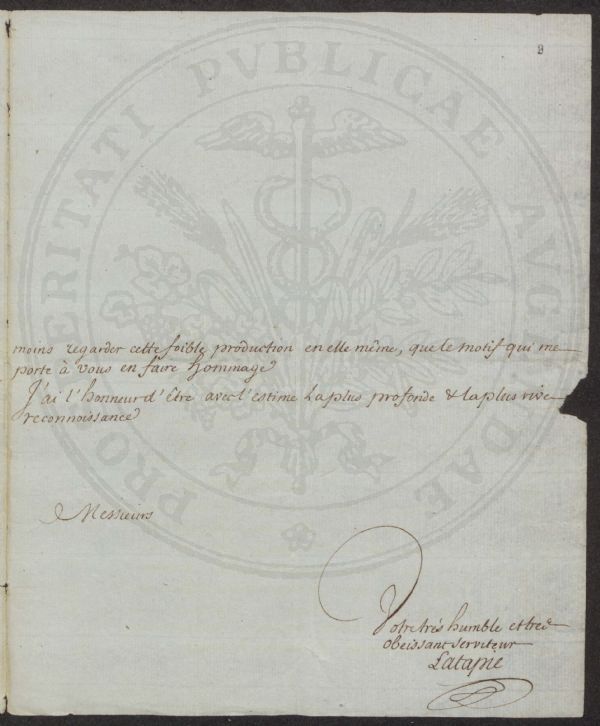 9
moins regarder cette foible production en elle même, que le motif qui me
porte à vous en faire hommage
J'ai l'honneur d'être avec l'estime la plus profonde & la plus vive
reconnoissance
Messieurs
Votre trés humble et tres
obeissant serviteur
Latapie
PROSPERITATI PVBLICAE AVGENDAE